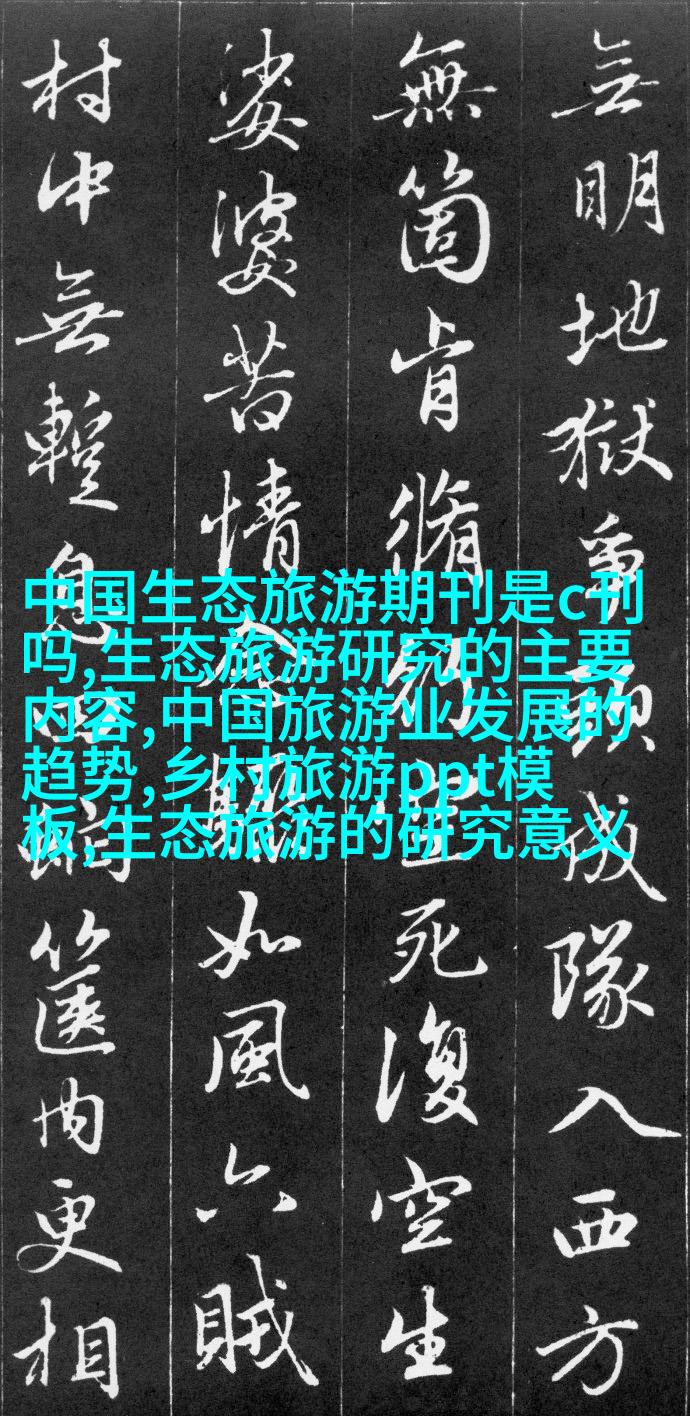 無明地獄爭頭成隊入西方
無箇肯脩死復空生
娑婆苦情如風六賊
村中無暫息蛇篋內更相
中国生态旅游期刊是c刊
吗,生态旅游研究的主要
内容,中国旅游业发展的
趋势,乡村旅游ppt模
板,生态旅游的研究意义